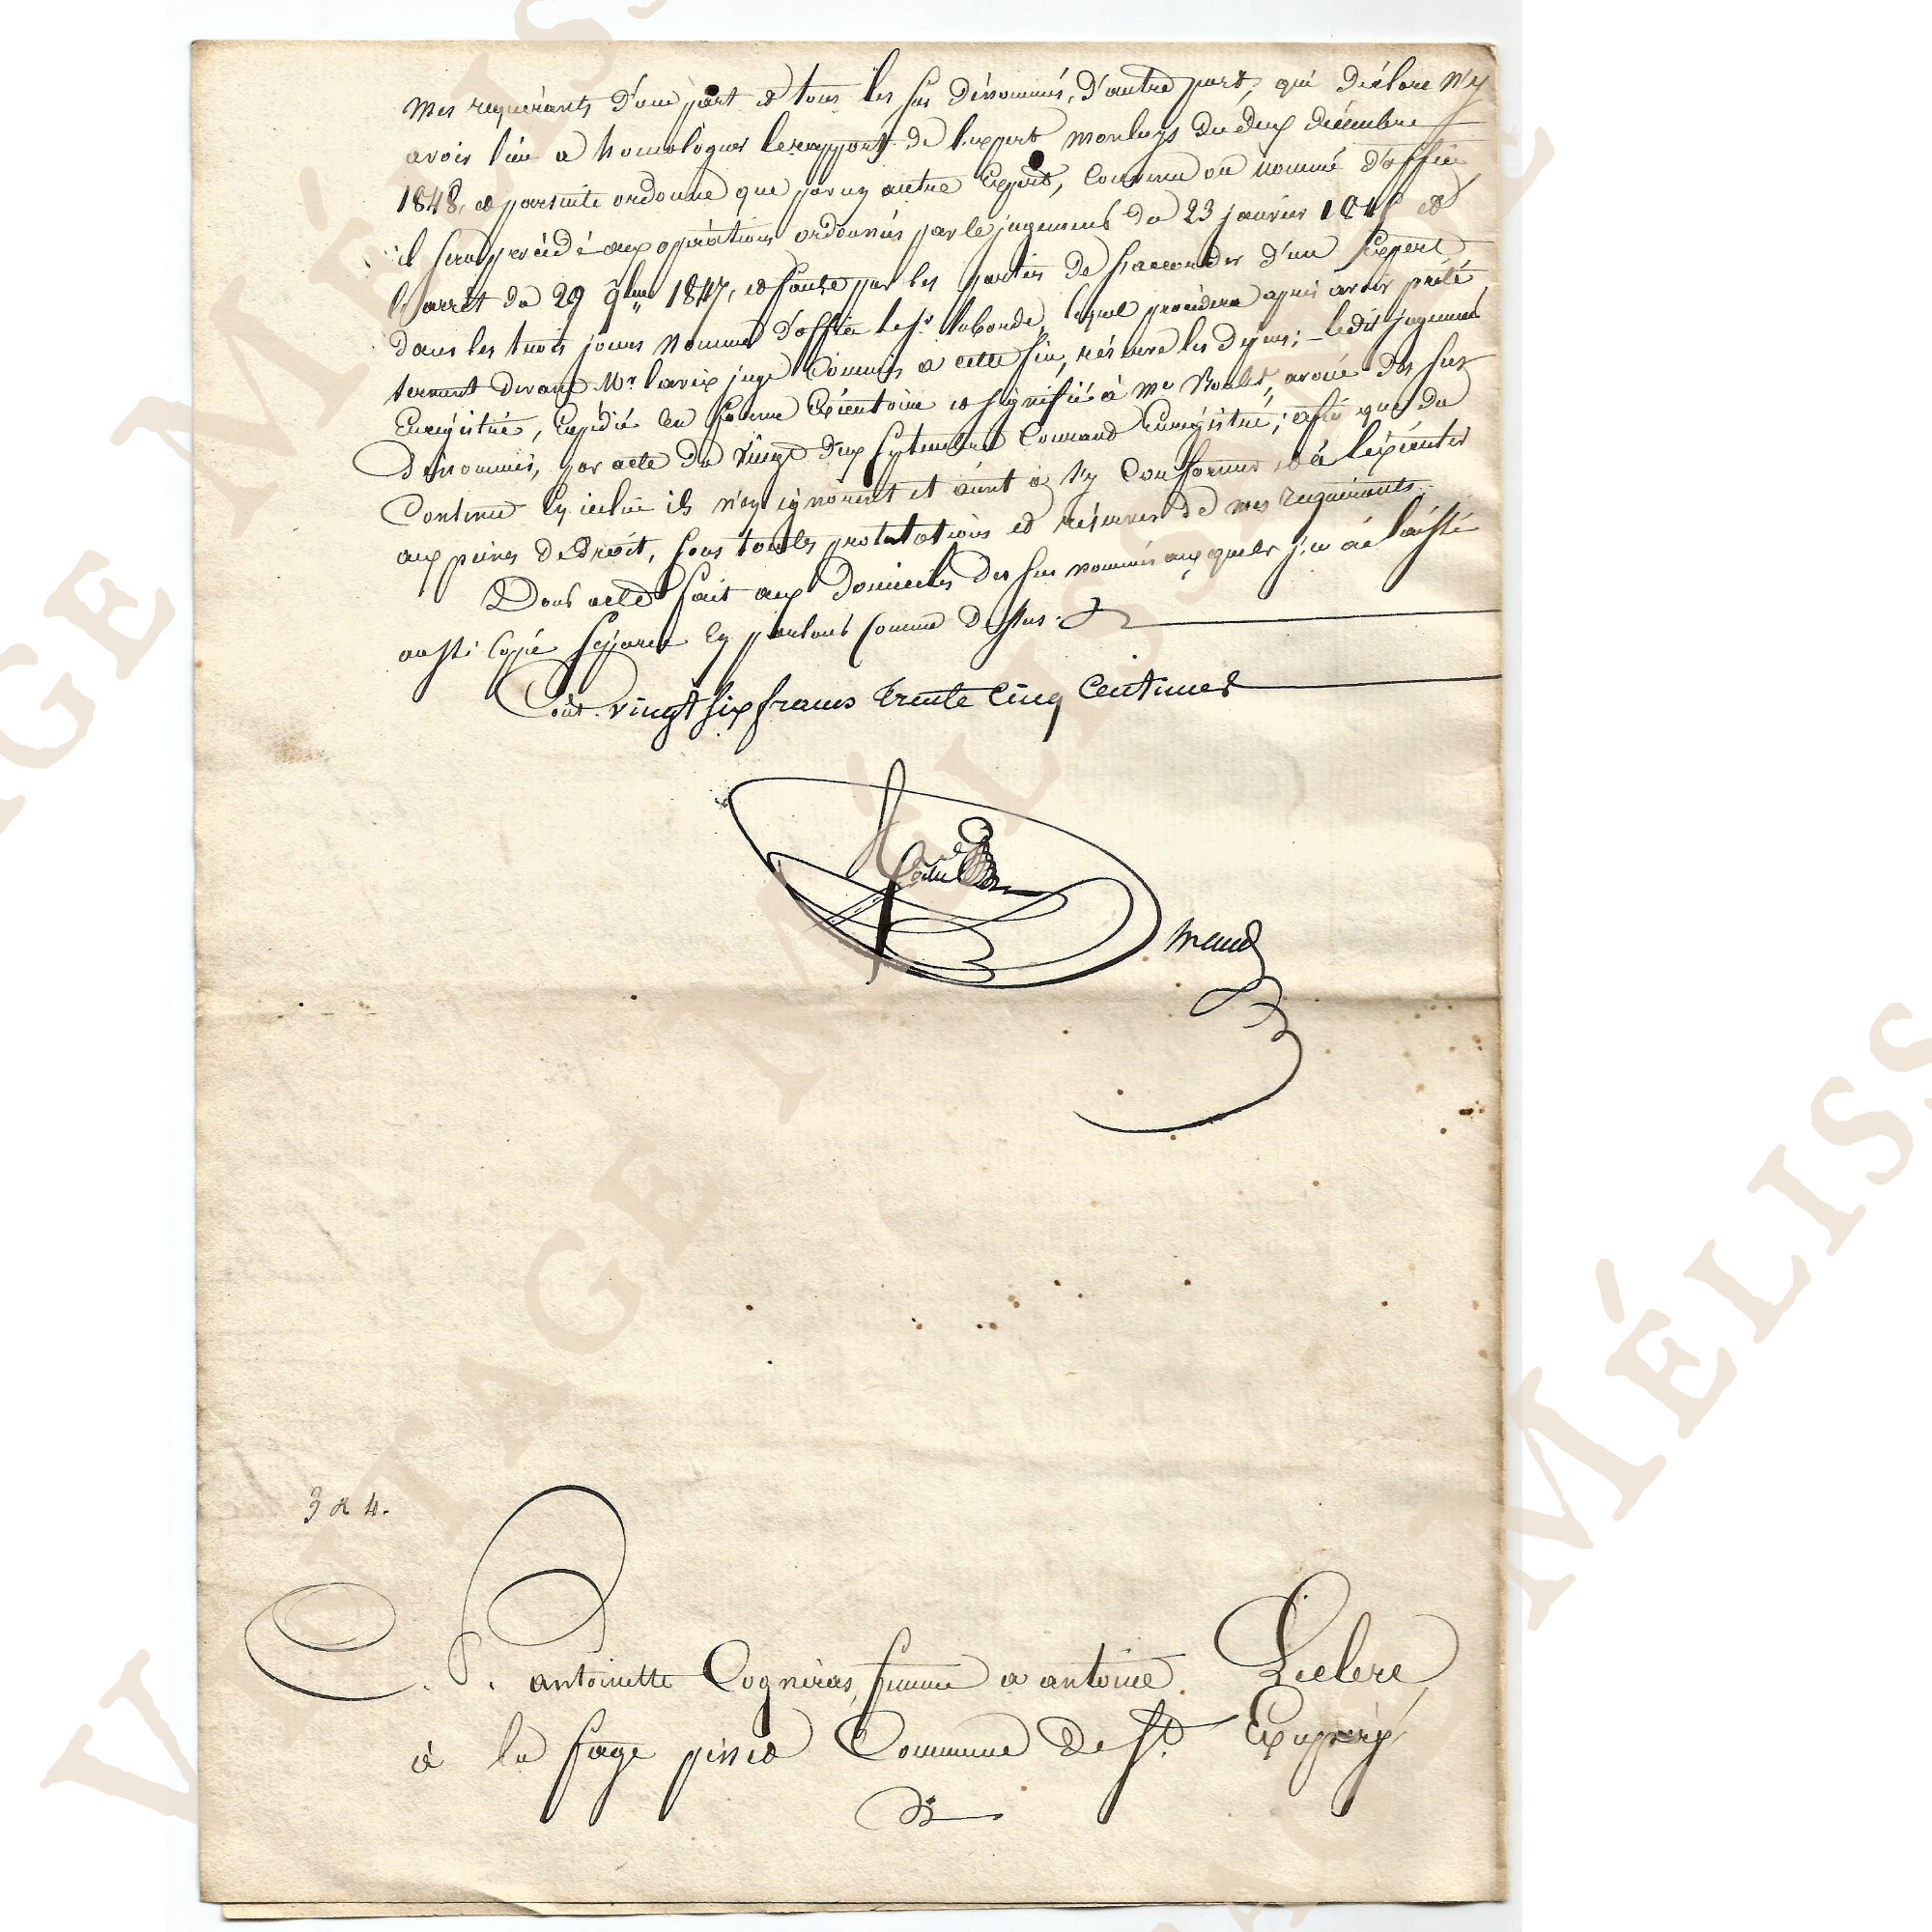 mes requérants d'une part et tous les sus dénommés, d'autre part, qui déclare n'y
avoir lieu a homologuer le rapport de l'expert monluys du deux décembre
1848, et par suite ordonne que par un autre Expert, convenu ou nommé d'office
il sera procédé aux opérations ordonnés par le jugement du 23 janvier et
l'arrêt du 29 9bre 1847, et faute par les parties de s'accorder d'un Expert
dans les trois jours nomme d'office le sr laborde, lequel procédera après avoir prêté
serment devant Mr lavix juge Commis a cette fin, réserve les dépens; ledit jugement
Enregistré, Expédié en forme Exécutoire et signifié à Me Roulet, avoué des sus
dénommés, par acte du vingt deux septembre Courant Enregistré; afin que du
Contenu en icelui ils n'en ignorent et aient a s'y Conformer et à l'exécuter
aux peines de droit, sous toutes protestations et réserves de mes requérants.
Dont acte fait aux domiciles des sus nommés auxquels j'en ai laissé
aussi Copie séparée en parlant comme dessus.
Coût. vingt six francs trente cinq Centimes
3 a 4.
antoinette Cogniras, femme a antoine Leclere
à la fage pinet Commune de St. Exupery
VINTAGE MÉLISSA